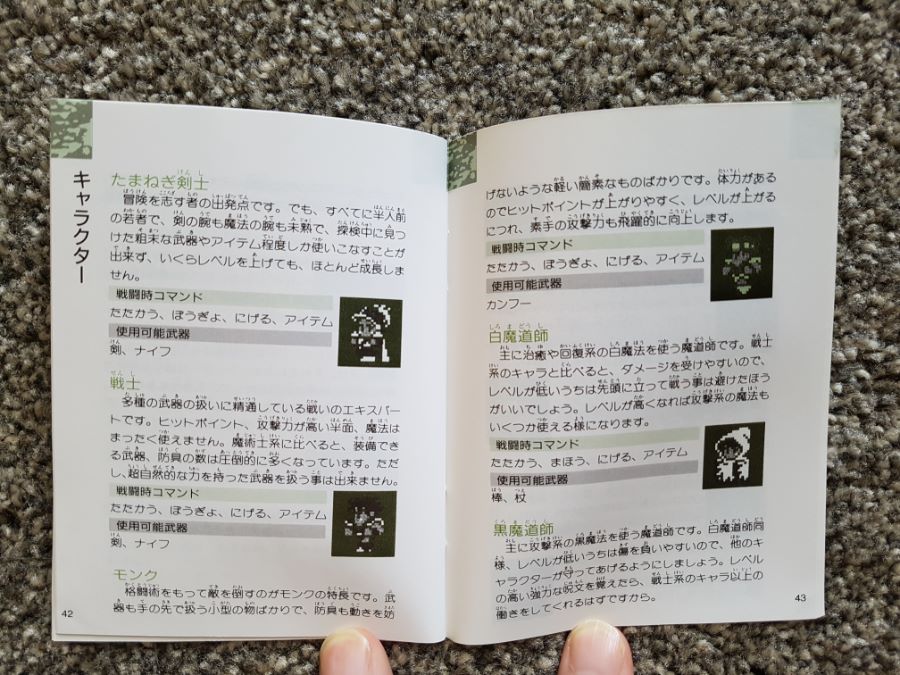 キャラクター
たまねぎ剣士
冒険を志す者の出発点です。でも、すべてに半人前
の若者で、剣の腕も魔法の腕も未熟で、探検中に見つ
けた粗末な武器やアイテム程度しか使いこなすことが
出来ず、いくらレベルを上げても、ほとんど成長しま
せん。
戦闘時コマンド
たたかう、ぼうぎょ、にげる、アイテム
使用可能武器
剣、ナイフ
戦士
多種の武器の扱いに精通している戦いのエキスパー
トです。ヒットポイント、攻撃力が高い半面、魔法は
まったく使えません。魔術士系に比べると、装備でき
る武器、防具の数は圧倒的に多くなっています。ただ
し、超自然的な力を持った武器を扱う事は出来ません。
戦闘時コマンド
たたかう、ぼうぎょ、にげる、アイテム
使用可能武器
剣、ナイフ
モンク
格闘術をもって敵を倒すのがモンクの特長です。武
器も手の先で扱う小型の物ばかりで、防具も動きを妨
42
げないような軽い簡素なものばかりです。体力がある
のでヒットポイントが上がりやすく、レベルが上がる
につれ、素手の攻撃力も飛躍的に向上します。
戦闘時コマンド
たたかう、ぼうぎょ、にげる、アイテム
使用可能武器
カンフー
白魔道師
主に治癒や回復系の白魔法を使う魔道師です。戦士
系のキャラと比べると、ダメージを受けやすいので、
レベルが低いうちは先頭に立って戦う事は避けたほう
がいいでしょう。レベルが高くなれば攻撃系の魔法も
いくつか使える様になります。
戦闘時コマンド
たたかう、まほう、にげる、アイテム
使用可能武器
棒、杖
黒魔道師
主に攻撃系の黒魔法を使う魔道師です。白魔道師同
様、レベルが低いうちは傷を負いやすいので、他のキ
ャラクターが守ってあげるようにしましょう。レベル
の高い強力な呪文を覚えたら、戦士系のキャラ以上の
働きをしてくれるはずですから。
43